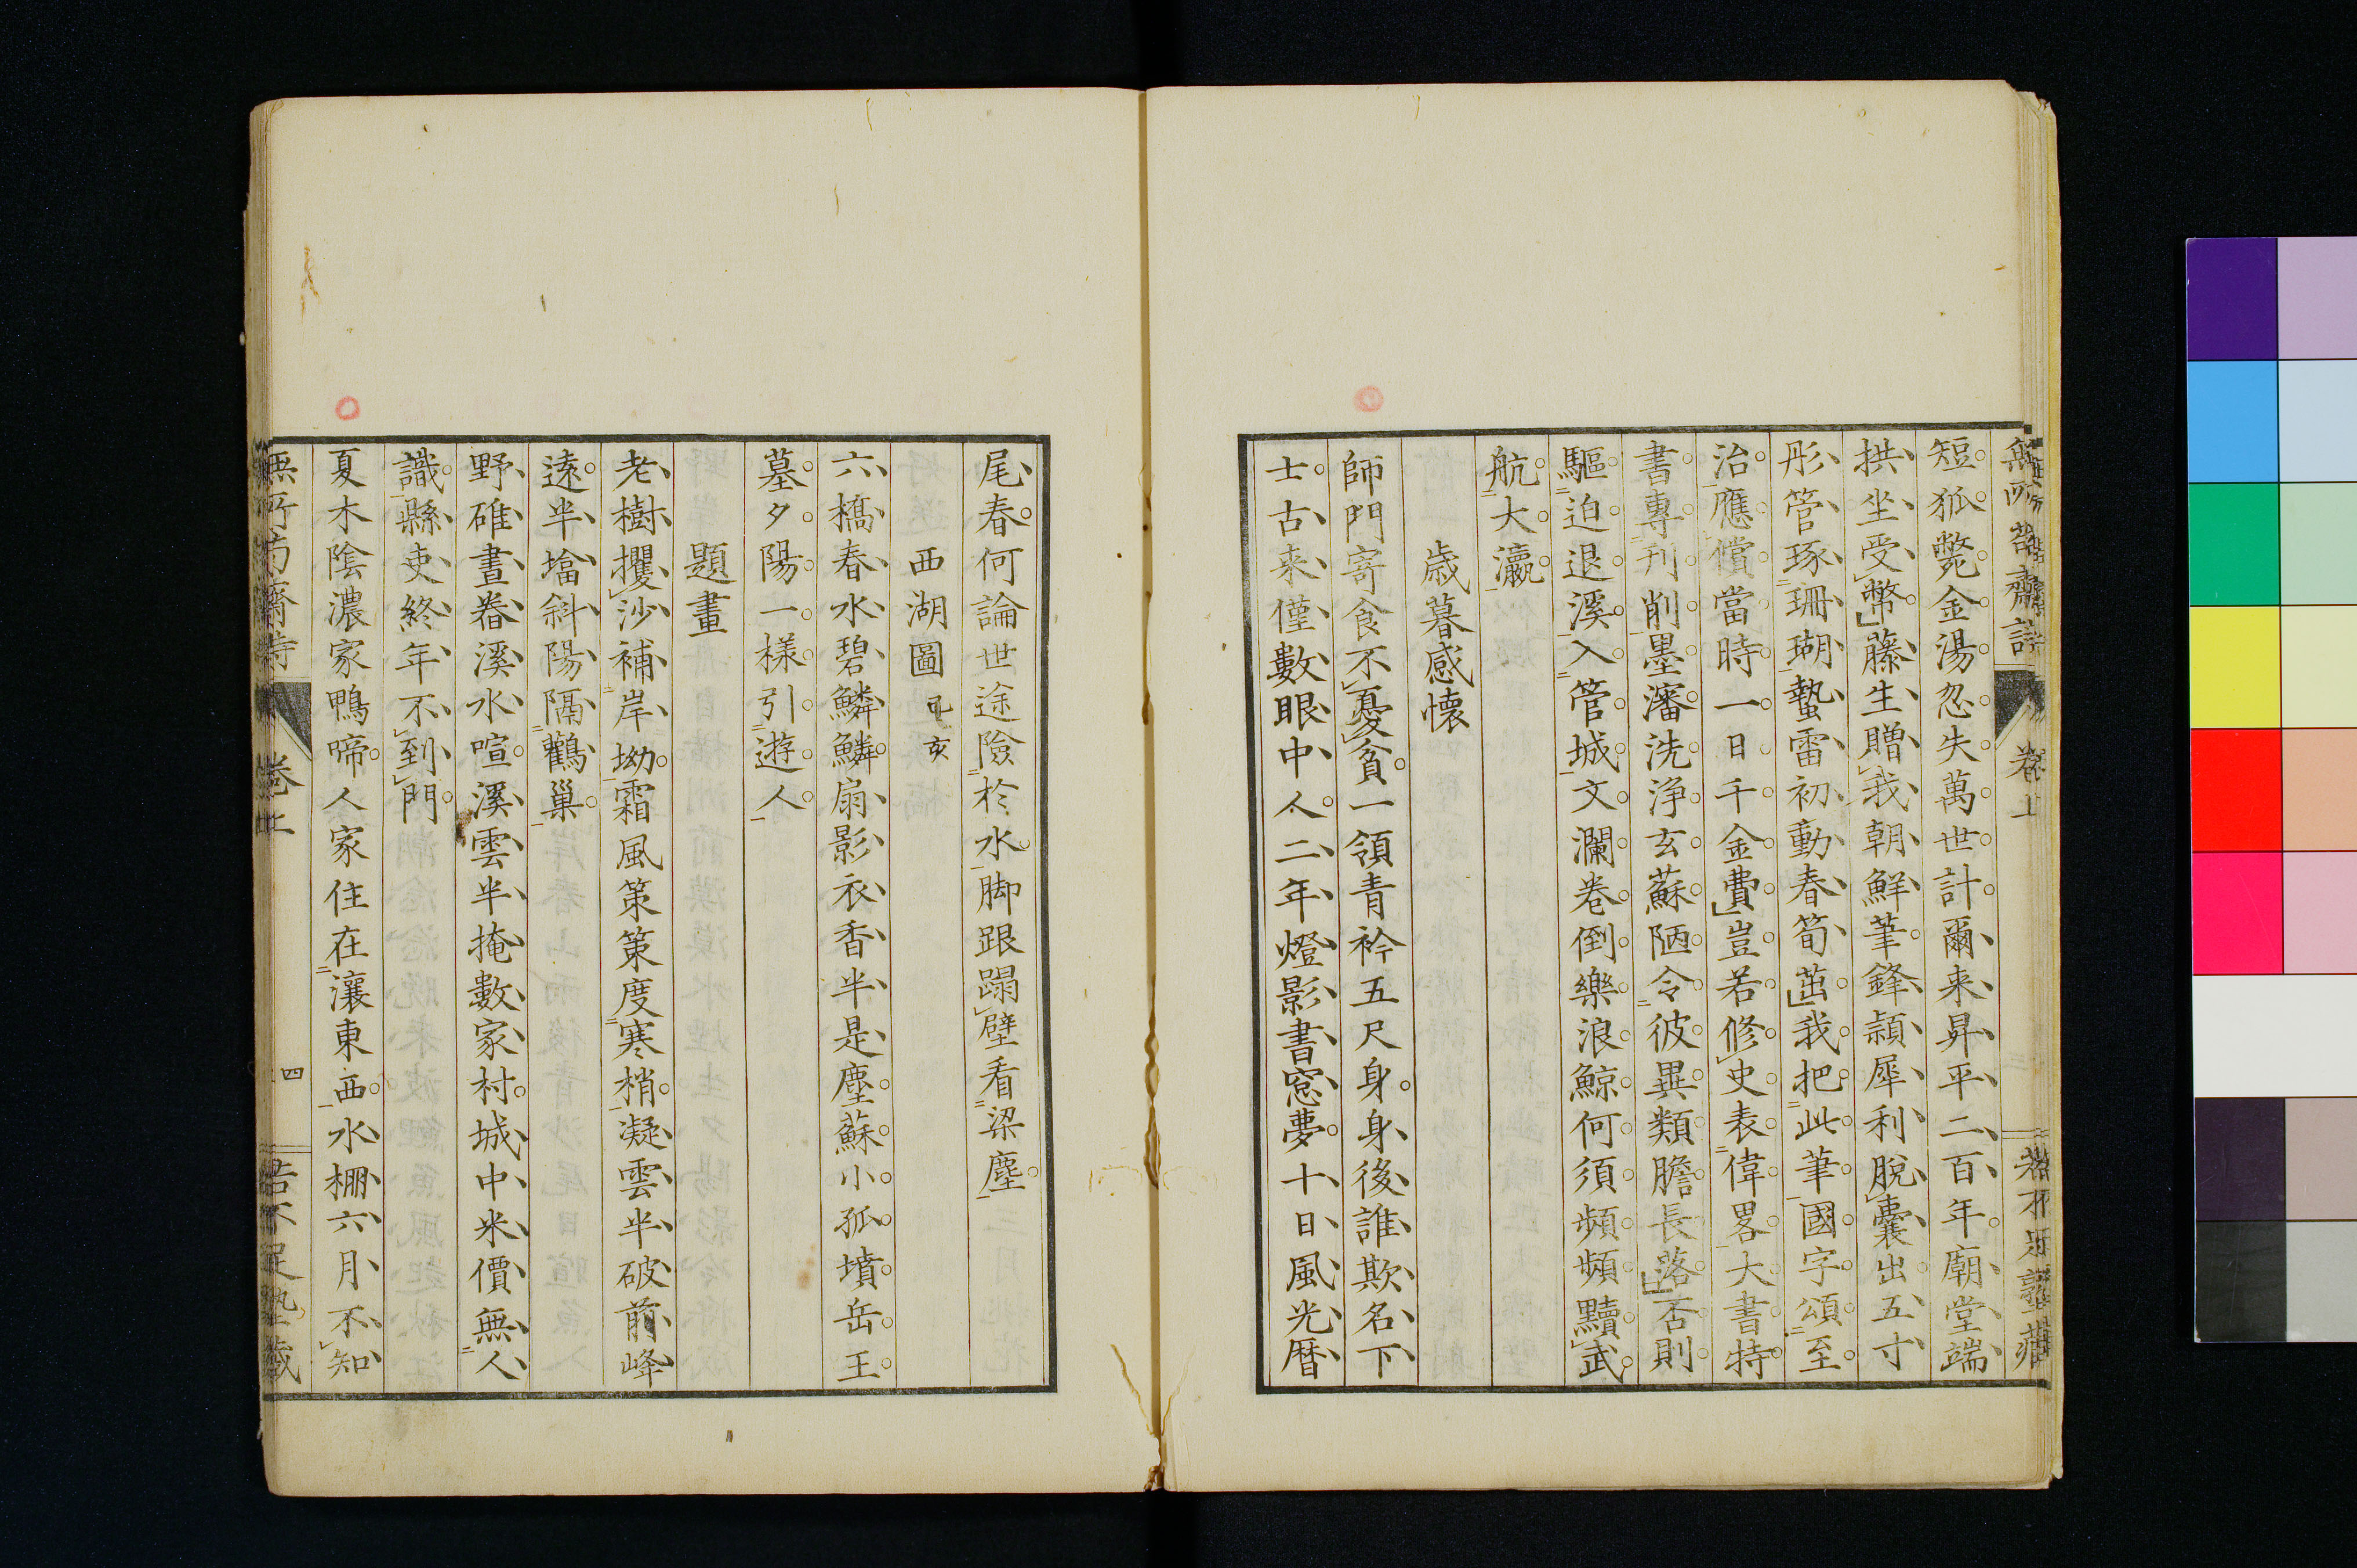 短狐斃金湯忽失萬世計爾来昇平二百年廟堂端
拱坐受幣藤生贈我朝鮮筆鋒頴犀利脱囊出五寸
彤管琢珊瑚蟄雷初動春筍茁我把此筆國字頌至
治應償當時一日千金費豈若修史表偉畧大書特
書專刊削墨瀋洗淨玄蘇陋令彼異類膽長落否則
驅迫退溪入管城文瀾卷倒樂浪鯨何須頻頻黷武
航大瀛
歳暮感懐
師門寄食不憂貧一領青衿五尺身身後誰欺名下
士古来僅數眼中人二年燈影書窓夢十日風光暦
尾春何論世途險於水脚跟蹋壁看梁塵
西湖圖 己亥
六橋春水碧鱗鱗扇影衣香半是塵蘇小孤墳岳王
墓夕陽一様引遊人
題畫
老樹攫沙補岸坳霜風策策度寒梢凝雲半破前峰
遠半塔斜陽隔鸛巢
野碓晝舂溪水喧溪雲半掩數家村城中米價無人
識縣吏終年不到門
夏木陰濃家鴨啼人家住在瀼東西水棚六月不知
卷上
四